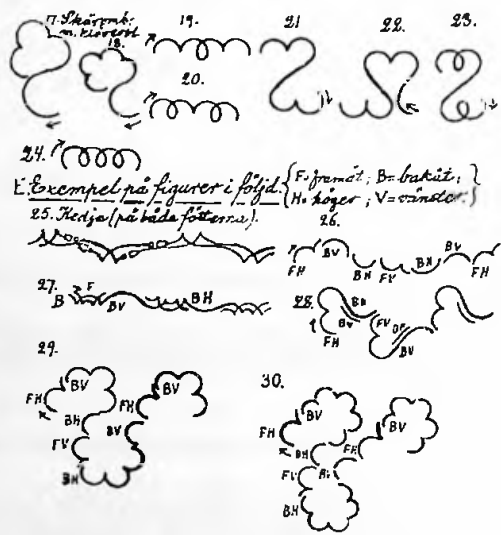 17. Skäromb.
m. klöverbl.
18.
19.
20.
21
22.
23.
24.
E. Exempel på figurer i följd. {F=framåt; B=bakåt; H=höger; V=vänster.}
25. Kedja (på båda fötterna).
26.
FH BV BH FV BH BV FH
27.
B F BV BH
28.
FH BV BH FV BV
29.
FH BV BH FV BH
FH BV BV
30.
FH BV BH FV BH BV
FH BV